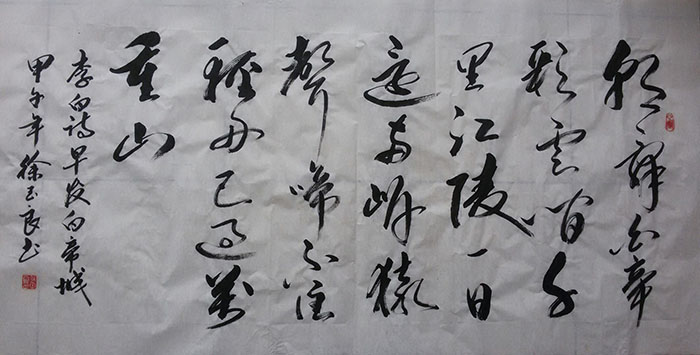 朝辞白帝
彩雲间千
里江陵一日
還两岸猿
聲啼不住
轻舟已过万
重山
李白诗早发白帝城
甲午年徐玉良书